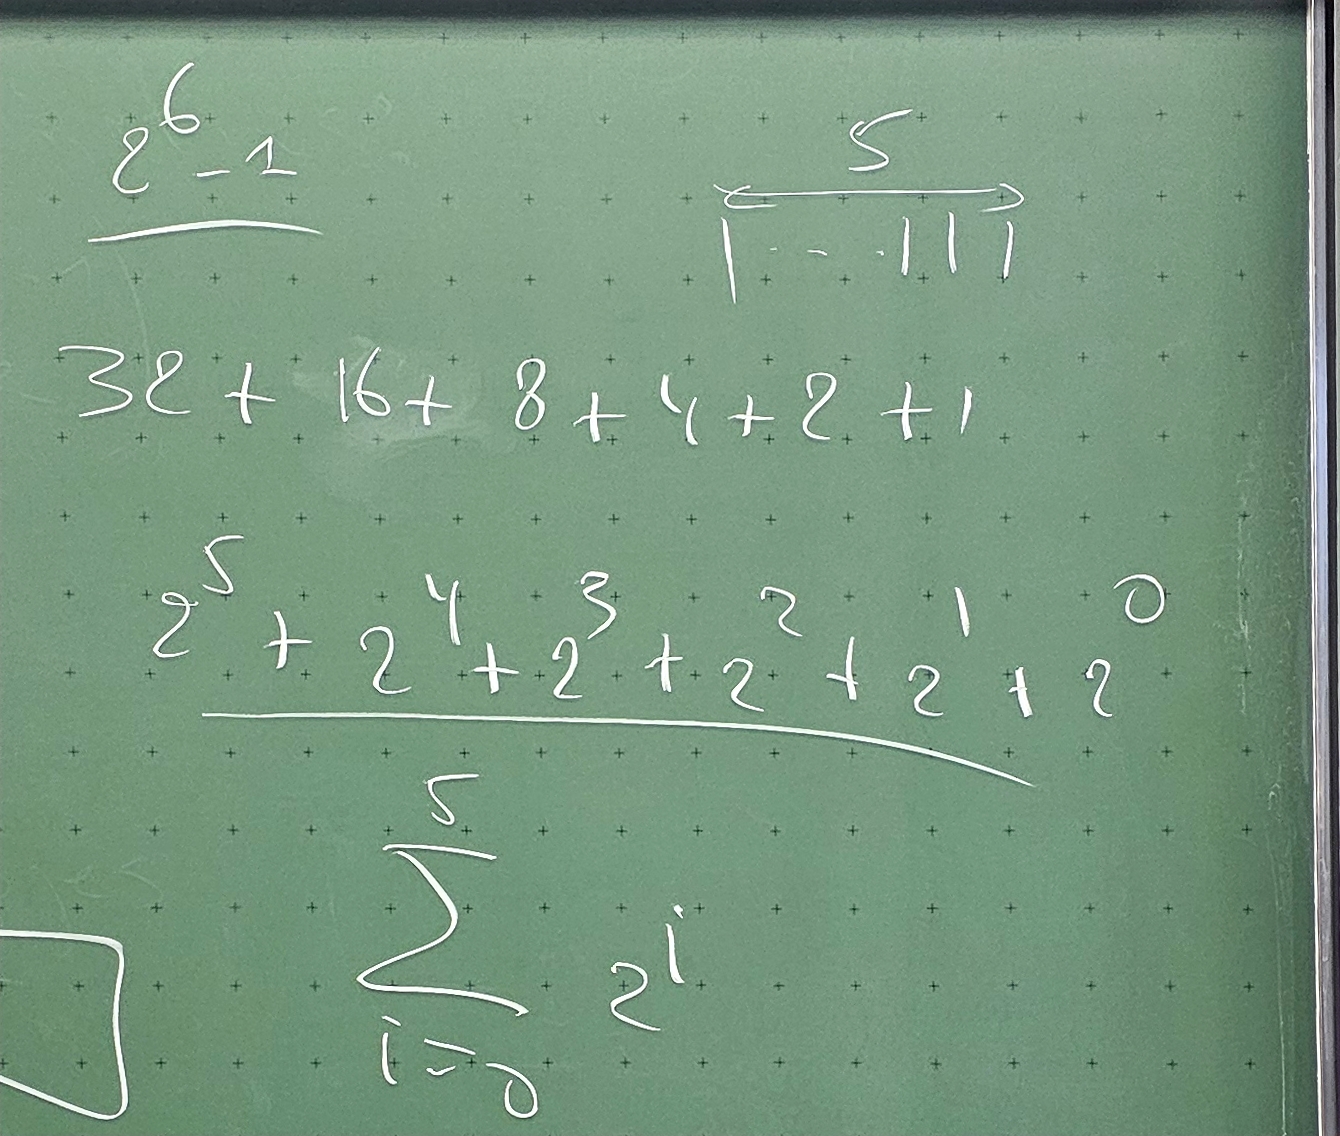 2⁶ - 1
5
1 - - - 1 1 1
32 + 16 + 8 + 4 + 2 + 1
2⁵ + 2⁴ + 2³ + 2² + 2¹ + 2⁰
5
∑ 2ⁱ
i = 0